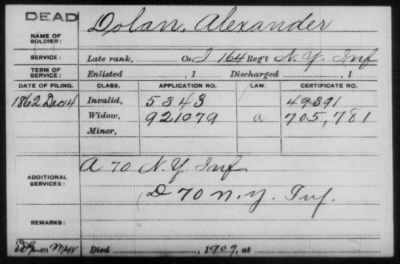 DEAD
NAME OF SOLDIER: Dolan, Alexander
SERVICE: Late rank, Co. I 164 Reg't N.Y. Inf
TERM OF SERVICE: Enlisted , 1 Discharged , 1
DATE OF FILING. CLASS. APPLICATION NO. LAW. CERTIFICATE NO.
1862 Dec 14 Invalid, 5343 49391
Widow, 921079 a 705,781
Minor,
ADDITIONAL SERVICES: A 70 N.Y. Inf
D 70 N.Y. Inf.
REMARKS:
Died , 1907, at